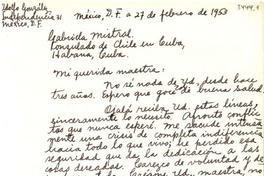 Adolfo Gurdián
Independencia, 31
México, D. F.
México, D. F. a 27 de febrero de 1953
Gabriela Mistral,
Consulado de Chile en Cuba,
Habana, Cuba.
Mi querida maestra:
No sé nada de Ud. desde hace
tres años. Espero que goce de buena salud.
Ojalá reciba Ud. estas líneas,
sinceramente lo necesito. Afronto conflic-
tos que nunca esperé. Me sacude intensa-
mente una crisis de completa indiferencia
hacia todo lo que vivo; he perdido esa
seguridad que da la dedicación a las
cosas deseadas. Carezco de voluntad y de
Ud. maestra, no